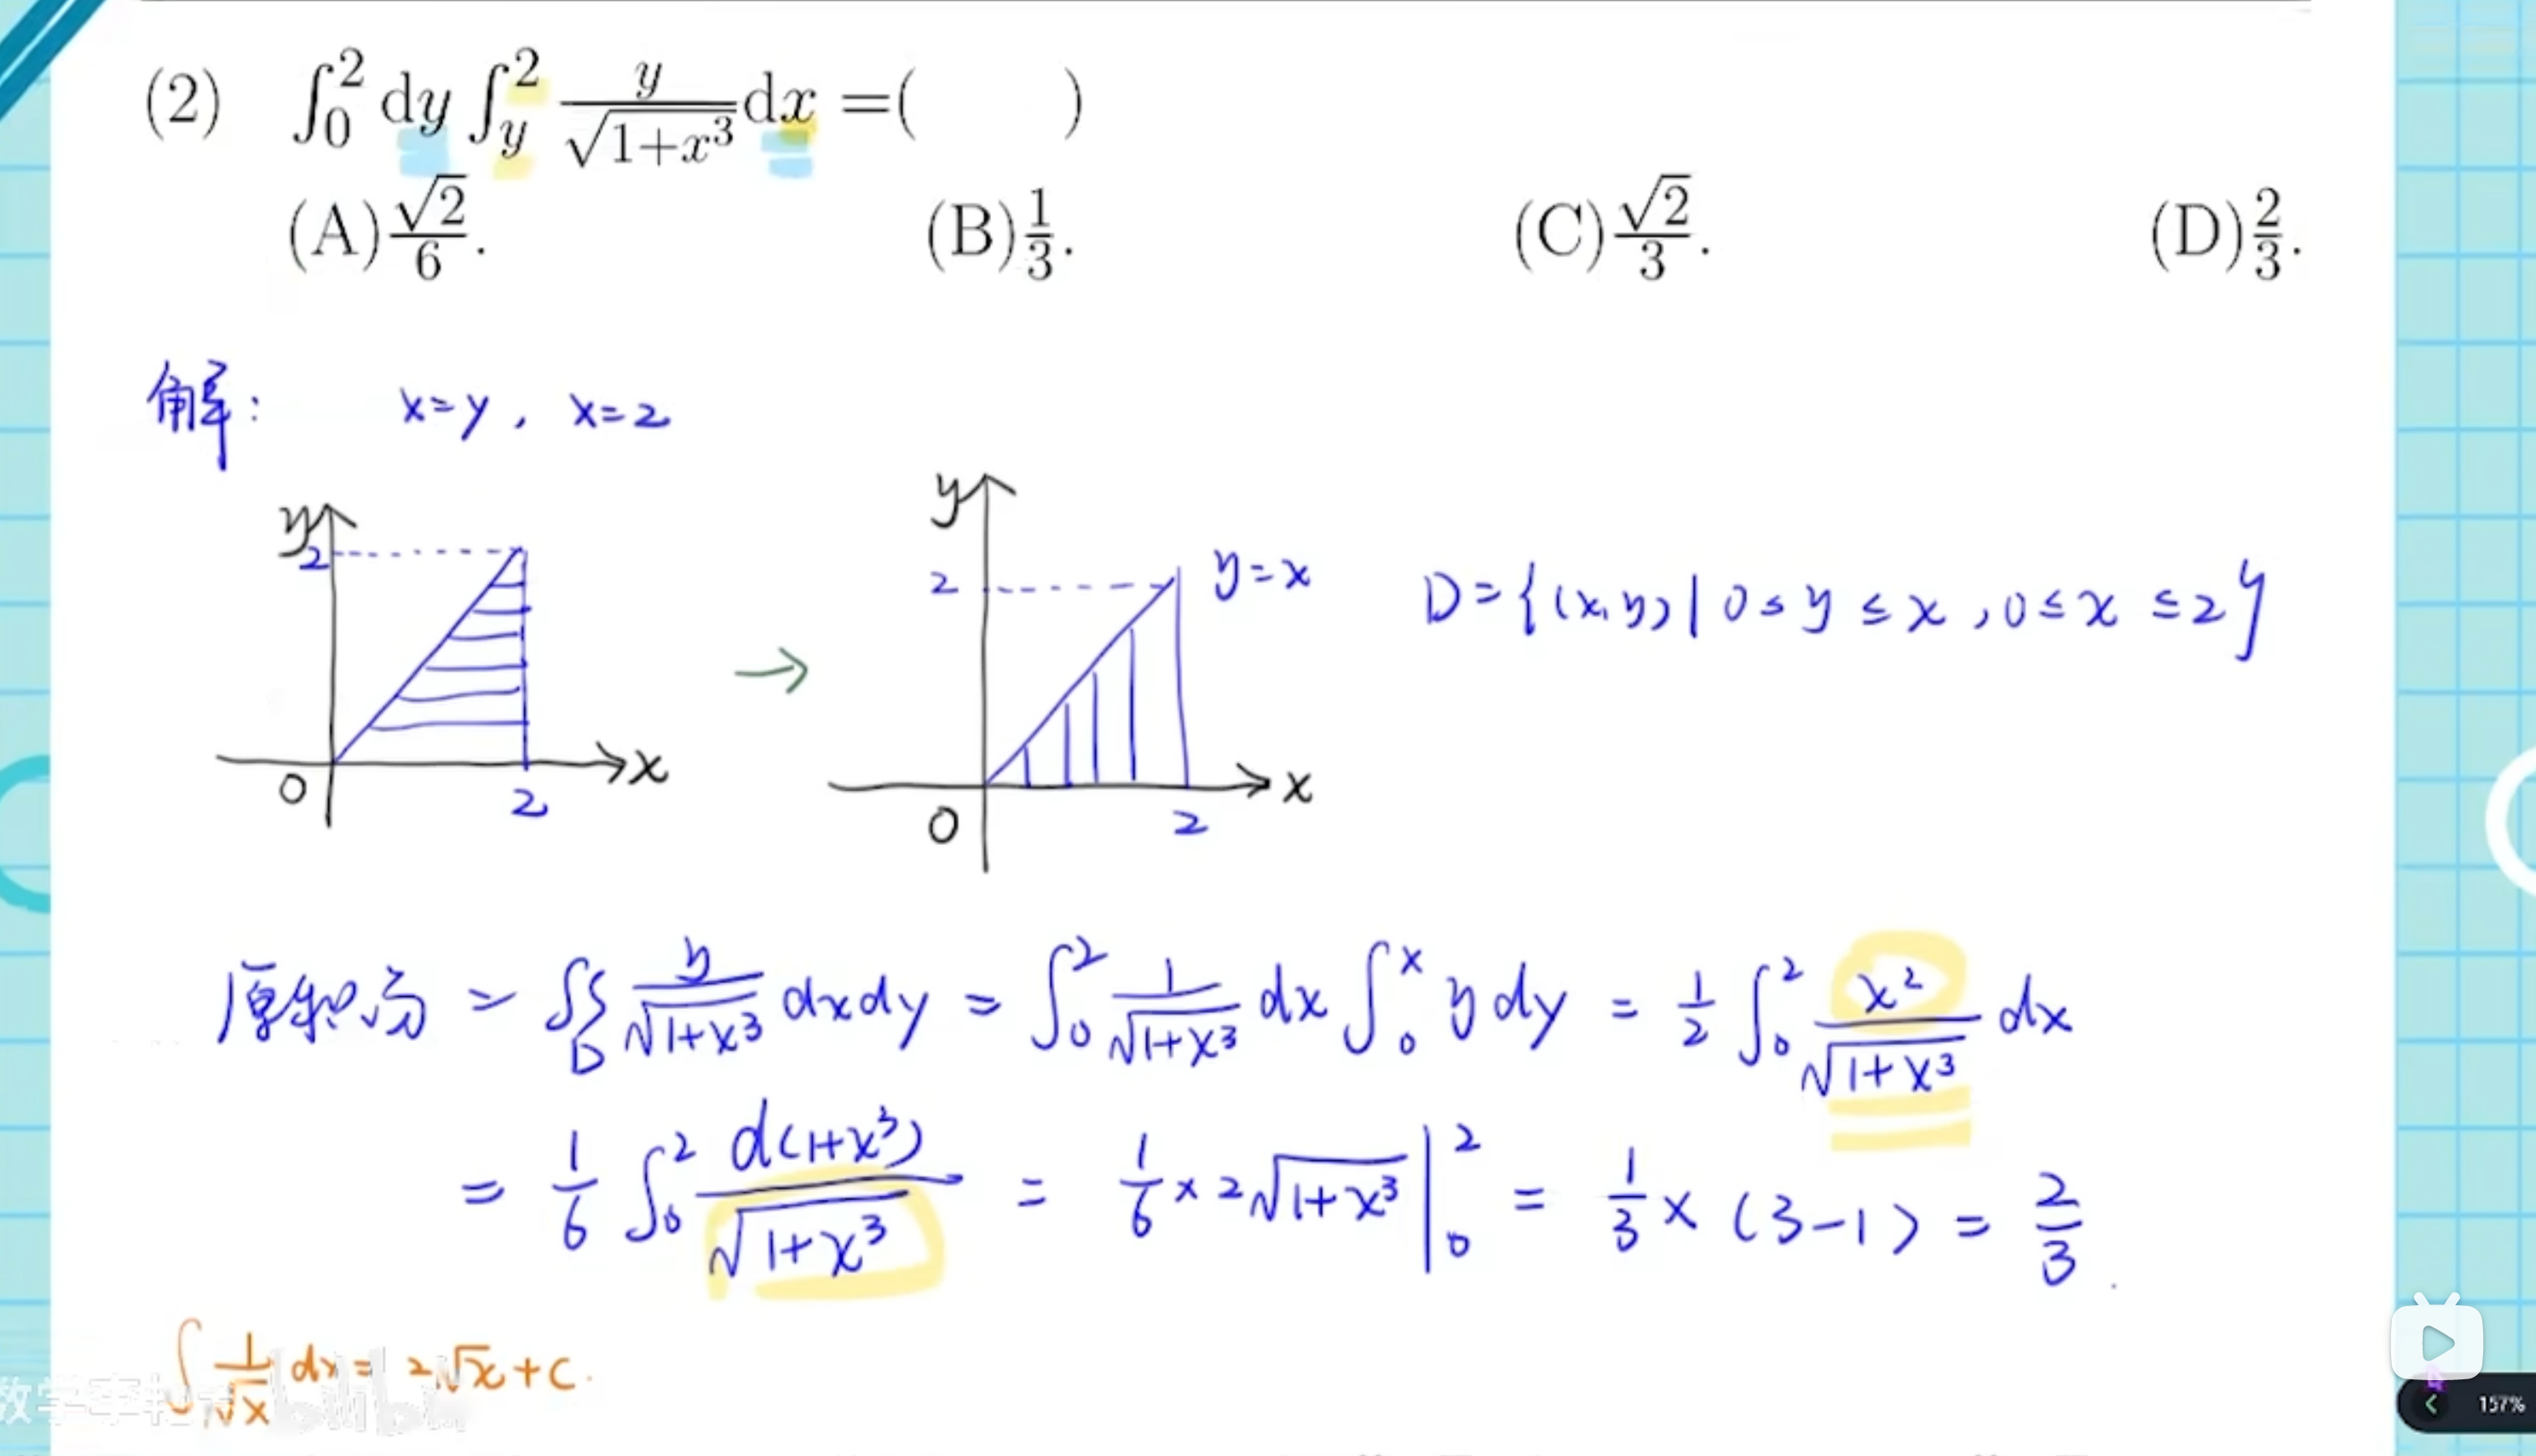 (2) ∫₀² dy ∫_y² y/√(1+x³) dx =( )
(A) √2/6. (B) 1/3. (C) √2/3. (D) 2/3.
解: x=y, x=2
y 2 0 2 x
→
y 2 y=x 0 2 x
D={(x,y)|0≤y≤x,0≤x≤2}
原积分 = ∬_D y/√(1+x³) dxdy = ∫₀² 1/√(1+x³) dx ∫₀ˣ y dy = 1/2 ∫₀² x²/√(1+x³) dx
= 1/6 ∫₀² d(1+x³)/√(1+x³) = 1/6 × 2√(1+x³) |₀² = 1/3 × (3-1) = 2/3.
∫ 1/√x dx = 2√x + C.
bilibili
157%